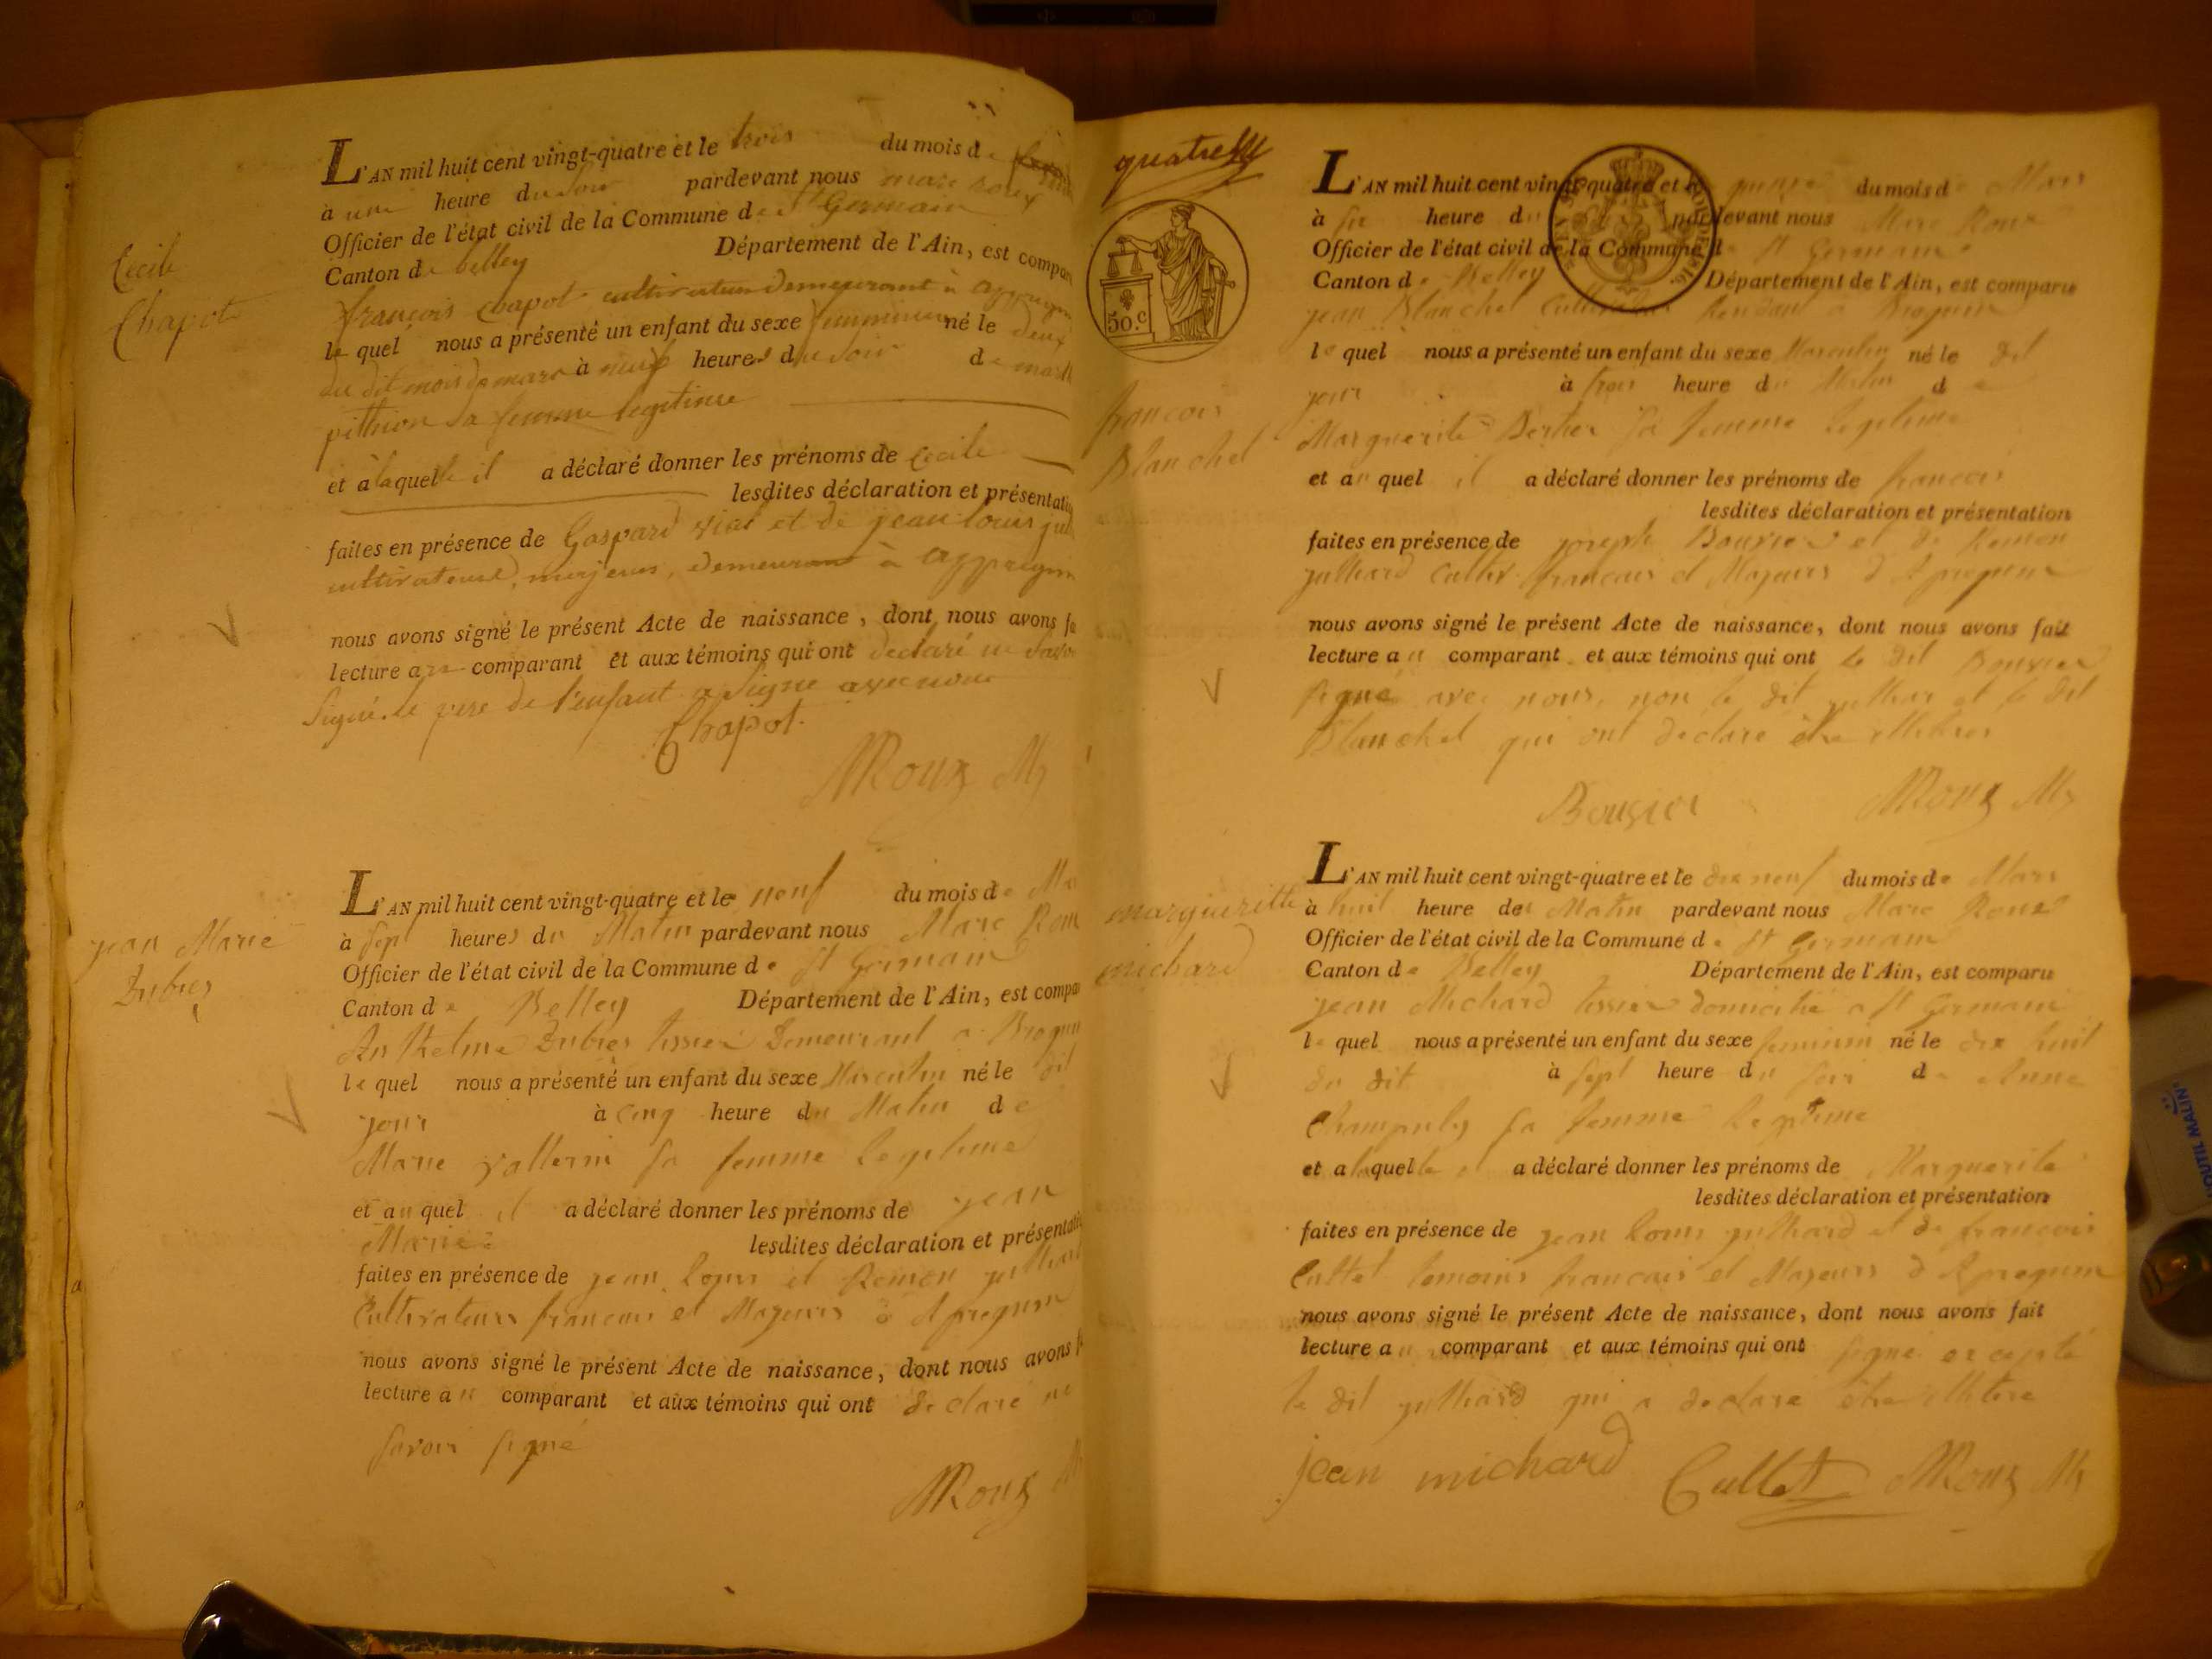 Cecile
Chapot
L'AN mil huit cent vingt-quatre et le trois du mois de
à une heure du soir pardevant nous marc roux
Officier de l'état civil de la Commune de St Germain
Canton de belley Département de l'Ain, est compar
francois chapot cultivateur demeurant à
le quel nous a présenté un enfant du sexe femminin né le deux
du dit mois de mars à neuf heures du soir de
pithion sa femme legitime
et à laquelle il a déclaré donner les prénoms de Cecile
lesdites déclaration et présentati
faites en présence de Gaspard vial et de jean louis
cultivateurs, majeurs, demeurant à
nous avons signé le présent Acte de naissance, dont nous avons fa
lecture au comparant et aux témoins qui ont declaré ne savoi
signé. le pere de l'enfant a signe avec nous
Chapot.
MRoux
jean Marie
Dubies
L'AN mil huit cent vingt-quatre et le neuf du mois de Ma
à sept heures du Matin pardevant nous Marc Rou
Officier de l'état civil de la Commune de St Germain
Canton de Belley Département de l'Ain, est compa
Anthelme Dubies tissier Demeurant a
le quel nous a présenté un enfant du sexe Masculin né le dit
jour à cinq heure du Matin de
Marie vallerin sa femme legitime
et au quel il a déclaré donner les prénoms de jean
Marie
lesdites déclaration et présentati
faites en présence de jean louis et Remon julliard
Cultivateurs francais et Majeurs
nous avons signé le présent Acte de naissance, dont nous avons f
lecture au comparant et aux témoins qui ont declare ne
savoir signé
MRoux
quatre
50.C
francois
Blanchet
L'AN mil huit cent vingt-quatre et le quinze du mois de Mars
à six heure du pardevant nous Marc Roux
Officier de l'état civil de la Commune de St Germain
Canton de Belley Département de l'Ain, est comparu
jean Blanchet Cultivateur
le quel nous a présenté un enfant du sexe Masculin né le dit
jour à trois heure du Matin de
Marguerite Berthet sa femme legitime
et au quel il a déclaré donner les prénoms de francois
lesdites déclaration et présentation
faites en présence de joseph Bouvier et de Remon
julliard Cultiv. francais et Majeurs
nous avons signé le présent Acte de naissance, dont nous avons fait
lecture au comparant et aux témoins qui ont le dit Bouvier
signé avec nous, non le dit julliar et le dit
Blanchet qui ont declare être
Bouvier
MRoux
margueritte
michard
L'AN mil huit cent vingt-quatre et le dix neuf du mois de Mars
à huit heure de Matin pardevant nous Marc Roux
Officier de l'état civil de la Commune de St Germain
Canton de Belley Département de l'Ain, est comparu
jean Michard tissier domicilié a St Germain
le quel nous a présenté un enfant du sexe feminin né le dix huit
du dit à sept heure du soir de Anne
sa femme legitime
et a laquelle il a déclaré donner les prénoms de Marguerite
lesdites déclaration et présentation
faites en présence de jean louis julliard et de francois
Cullet temoins francais et Majeurs
nous avons signé le présent Acte de naissance, dont nous avons fait
lecture au comparant et aux témoins qui ont signé excepté
le dit julliard qui a declare être
jean michard Cullet MRoux
OUTIL MALIN